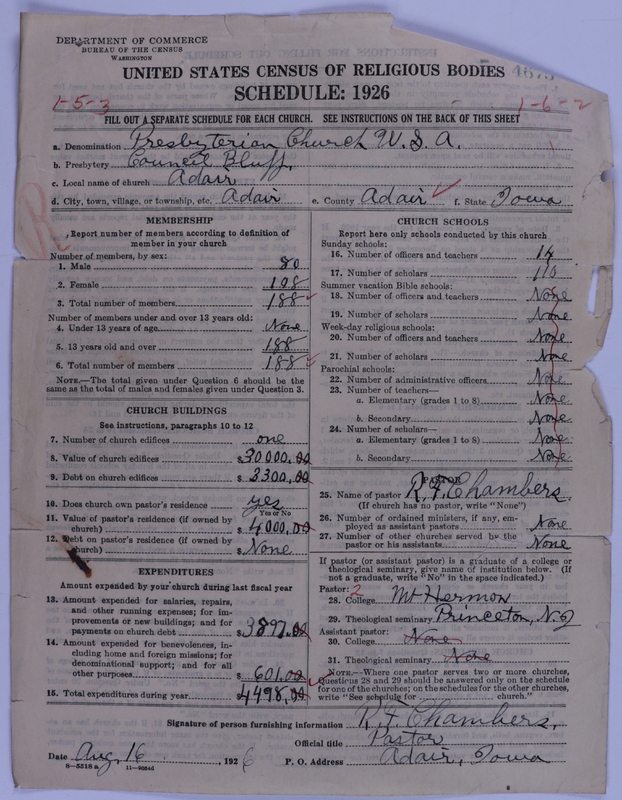 DEPARTMENT OF COMMERCE
BUREAU OF THE CENSUS
WASHINGTON
UNITED STATES CENSUS OF RELIGIOUS BODIES
SCHEDULE: 1926
1-5-3
1-6-2
FILL OUT A SEPARATE SCHEDULE FOR EACH CHURCH. SEE INSTRUCTIONS ON THE BACK OF THIS SHEET
a. Denomination Presbyterian Church U.S.A.
b. Presbytery Council Bluff.
c. Local name of church Adair
d. City, town, village, or township, etc. Adair e. County Adair f. State Iowa
MEMBERSHIP
Report number of members according to definition of
member in your church
Number of members, by sex:
1. Male 80
2. Female 108
3. Total number of members 188
Number of members under and over 13 years old:
4. Under 13 years of age None
5. 13 years old and over 188
6. Total number of members 188
NOTE.—The total given under Question 6 should be the
same as the total of males and females given under Question 3.
CHURCH BUILDINGS
See instructions, paragraphs 10 to 12
7. Number of church edifices one
8. Value of church edifices $30000.00
9. Debt on church edifices $3300.00
10. Does church own pastor's residence yes
Yes or No
11. Value of pastor's residence (if owned by
church) $4000.00
12. Debt on pastor's residence (if owned by
church) $None
EXPENDITURES
Amount expended by your church during last fiscal year
13. Amount expended for salaries, repairs,
and other running expenses; for im-
provements or new buildings; and for
payments on church debt $3897.00
14. Amount expended for benevolences, in-
cluding home and foreign missions; for
denominational support; and for all
other purposes $601.00
15. Total expenditures during year $4498.00
CHURCH SCHOOLS
Report here only schools conducted by this church
Sunday schools:
16. Number of officers and teachers 14
17. Number of scholars 110
Summer vacation Bible schools:
18. Number of officers and teachers None
19. Number of scholars None
Week-day religious schools:
20. Number of officers and teachers None
21. Number of scholars None
Parochial schools:
22. Number of administrative officers None
23. Number of teachers—
a. Elementary (grades 1 to 8) None
b. Secondary None
24. Number of scholars—
a. Elementary (grades 1 to 8) None
b. Secondary None
PASTOR
25. Name of pastor R. F. Chambers
(If church has no pastor, write "None")
26. Number of ordained ministers, if any, em-
ployed as assistant pastors None
27. Number of other churches served by the
pastor or his assistants None
If pastor (or assistant pastor) is a graduate of a college or
theological seminary, give name of institution below. (If
not a graduate, write "No" in the space indicated.)
Pastor: 2
28. College Mt Hermon
29. Theological seminary Princeton, N.J
Assistant pastor:
30. College None
31. Theological seminary None
NOTE.—Where one pastor serves two or more churches,
Questions 28 and 29 should be answered only on the schedule
for one of the churches; on the schedules for the other churches,
write "See schedule for church."
Signature of person furnishing information R. F Chambers.
Official title Pastor
Date Aug. 16, 1926 P. O. Address Adair, Iowa
8—5518 a